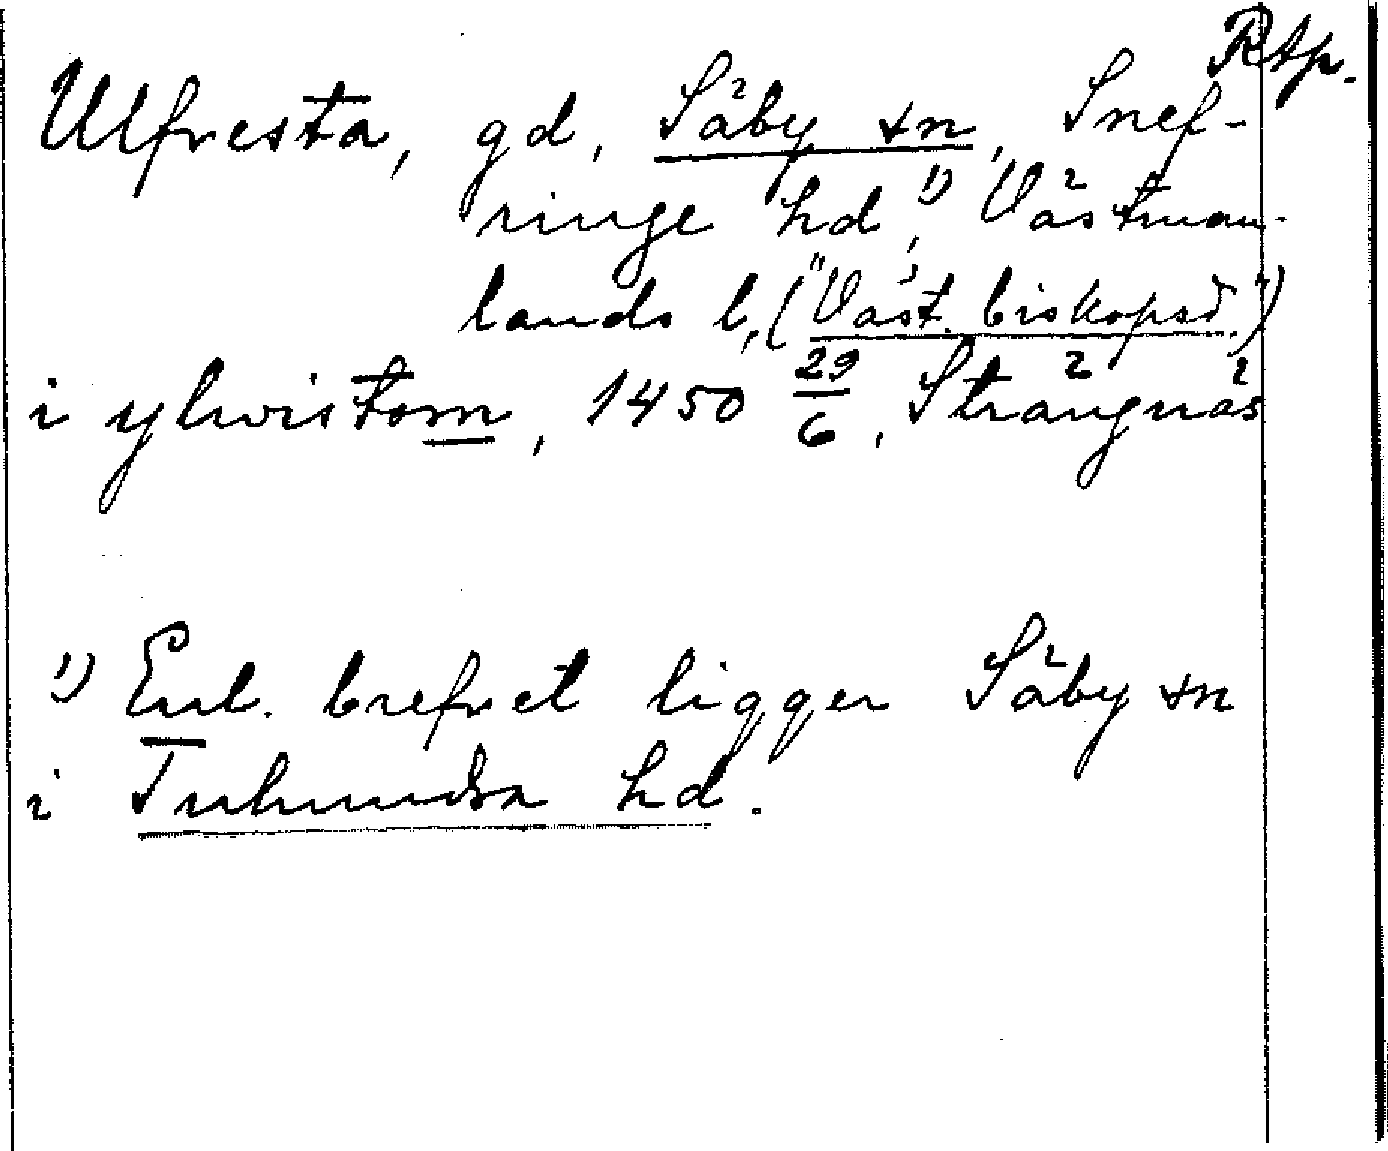 Rtp.
Ulfvesta, gd, Säby sn, Snef-
ringe hd,¹⁾ Västman-
lands l, ("Väst. biskopsd.")
i ylwistom, 1450 29/6, Strängnäs
¹⁾ Enl. brefvet ligger Säby sn
i Tuhundra hd.